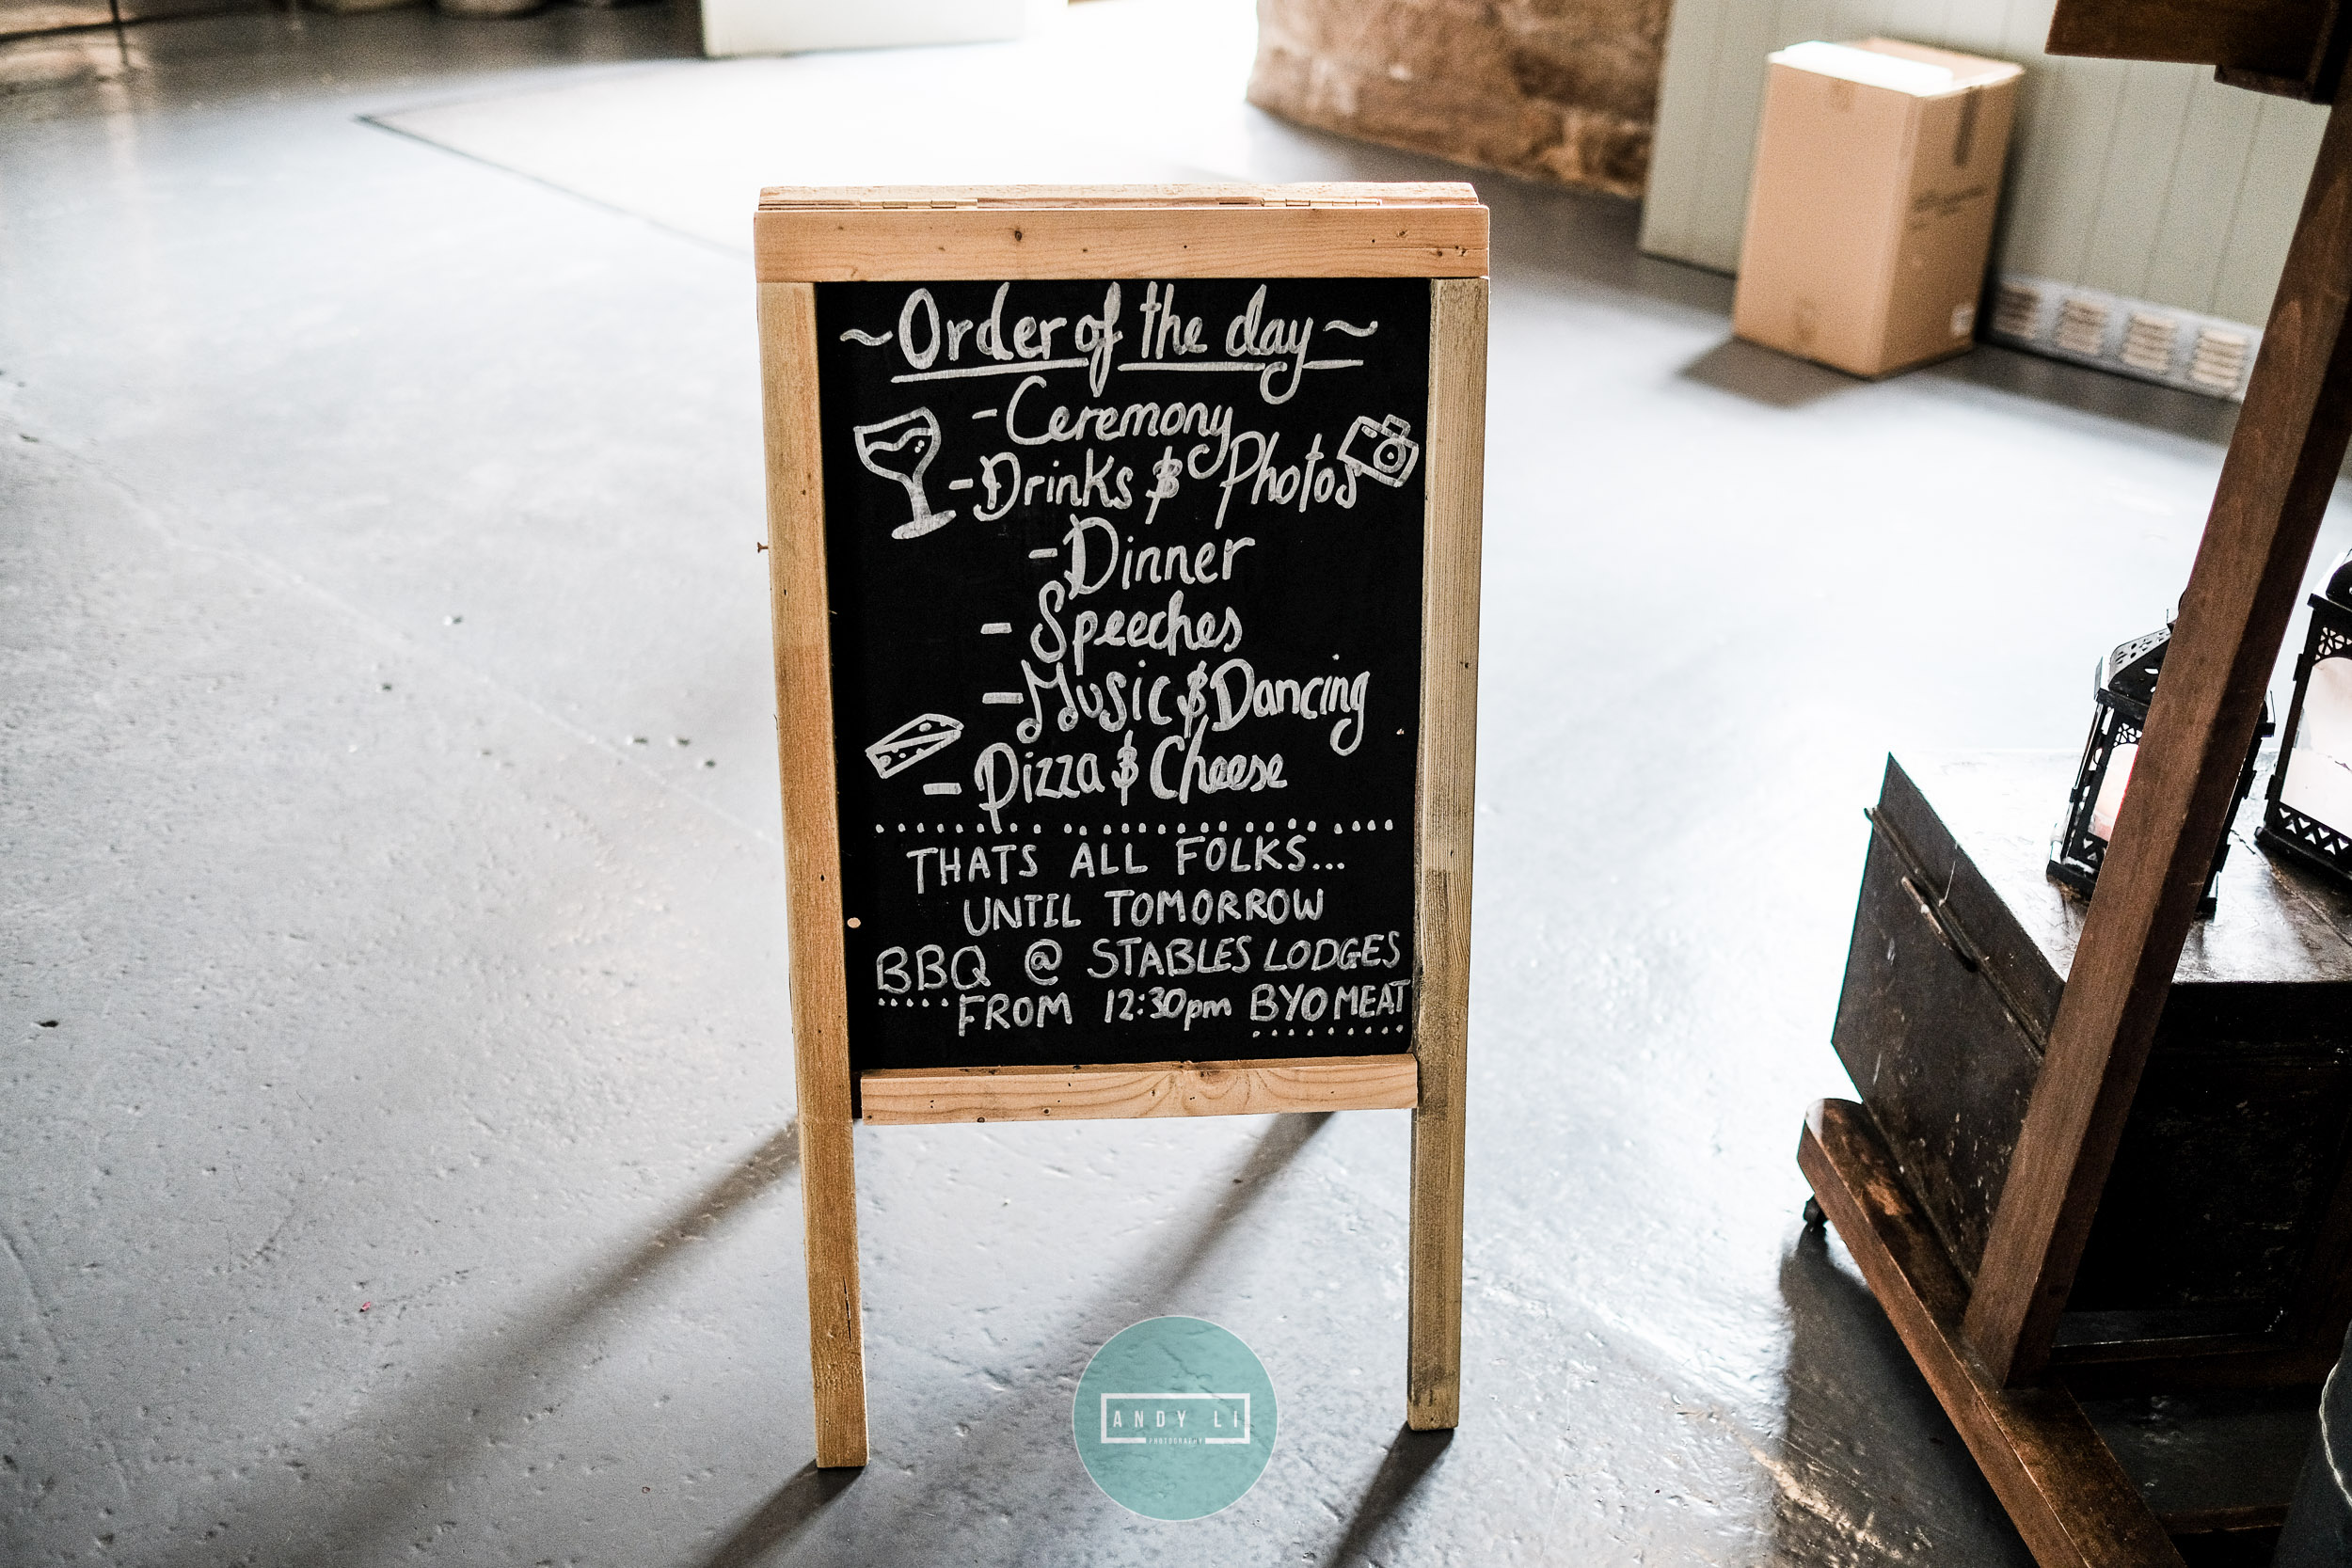 ~Order of the day~
-Ceremony
-Drinks & Photos
-Dinner
- Speeches
-Music & Dancing
- Pizza & Cheese
THATS ALL FOLKS...
UNTIL TOMORROW
BBQ @ STABLES LODGES
FROM 12:30pm BYO MEAT
ANDY LI
PHOTOGRAPHY